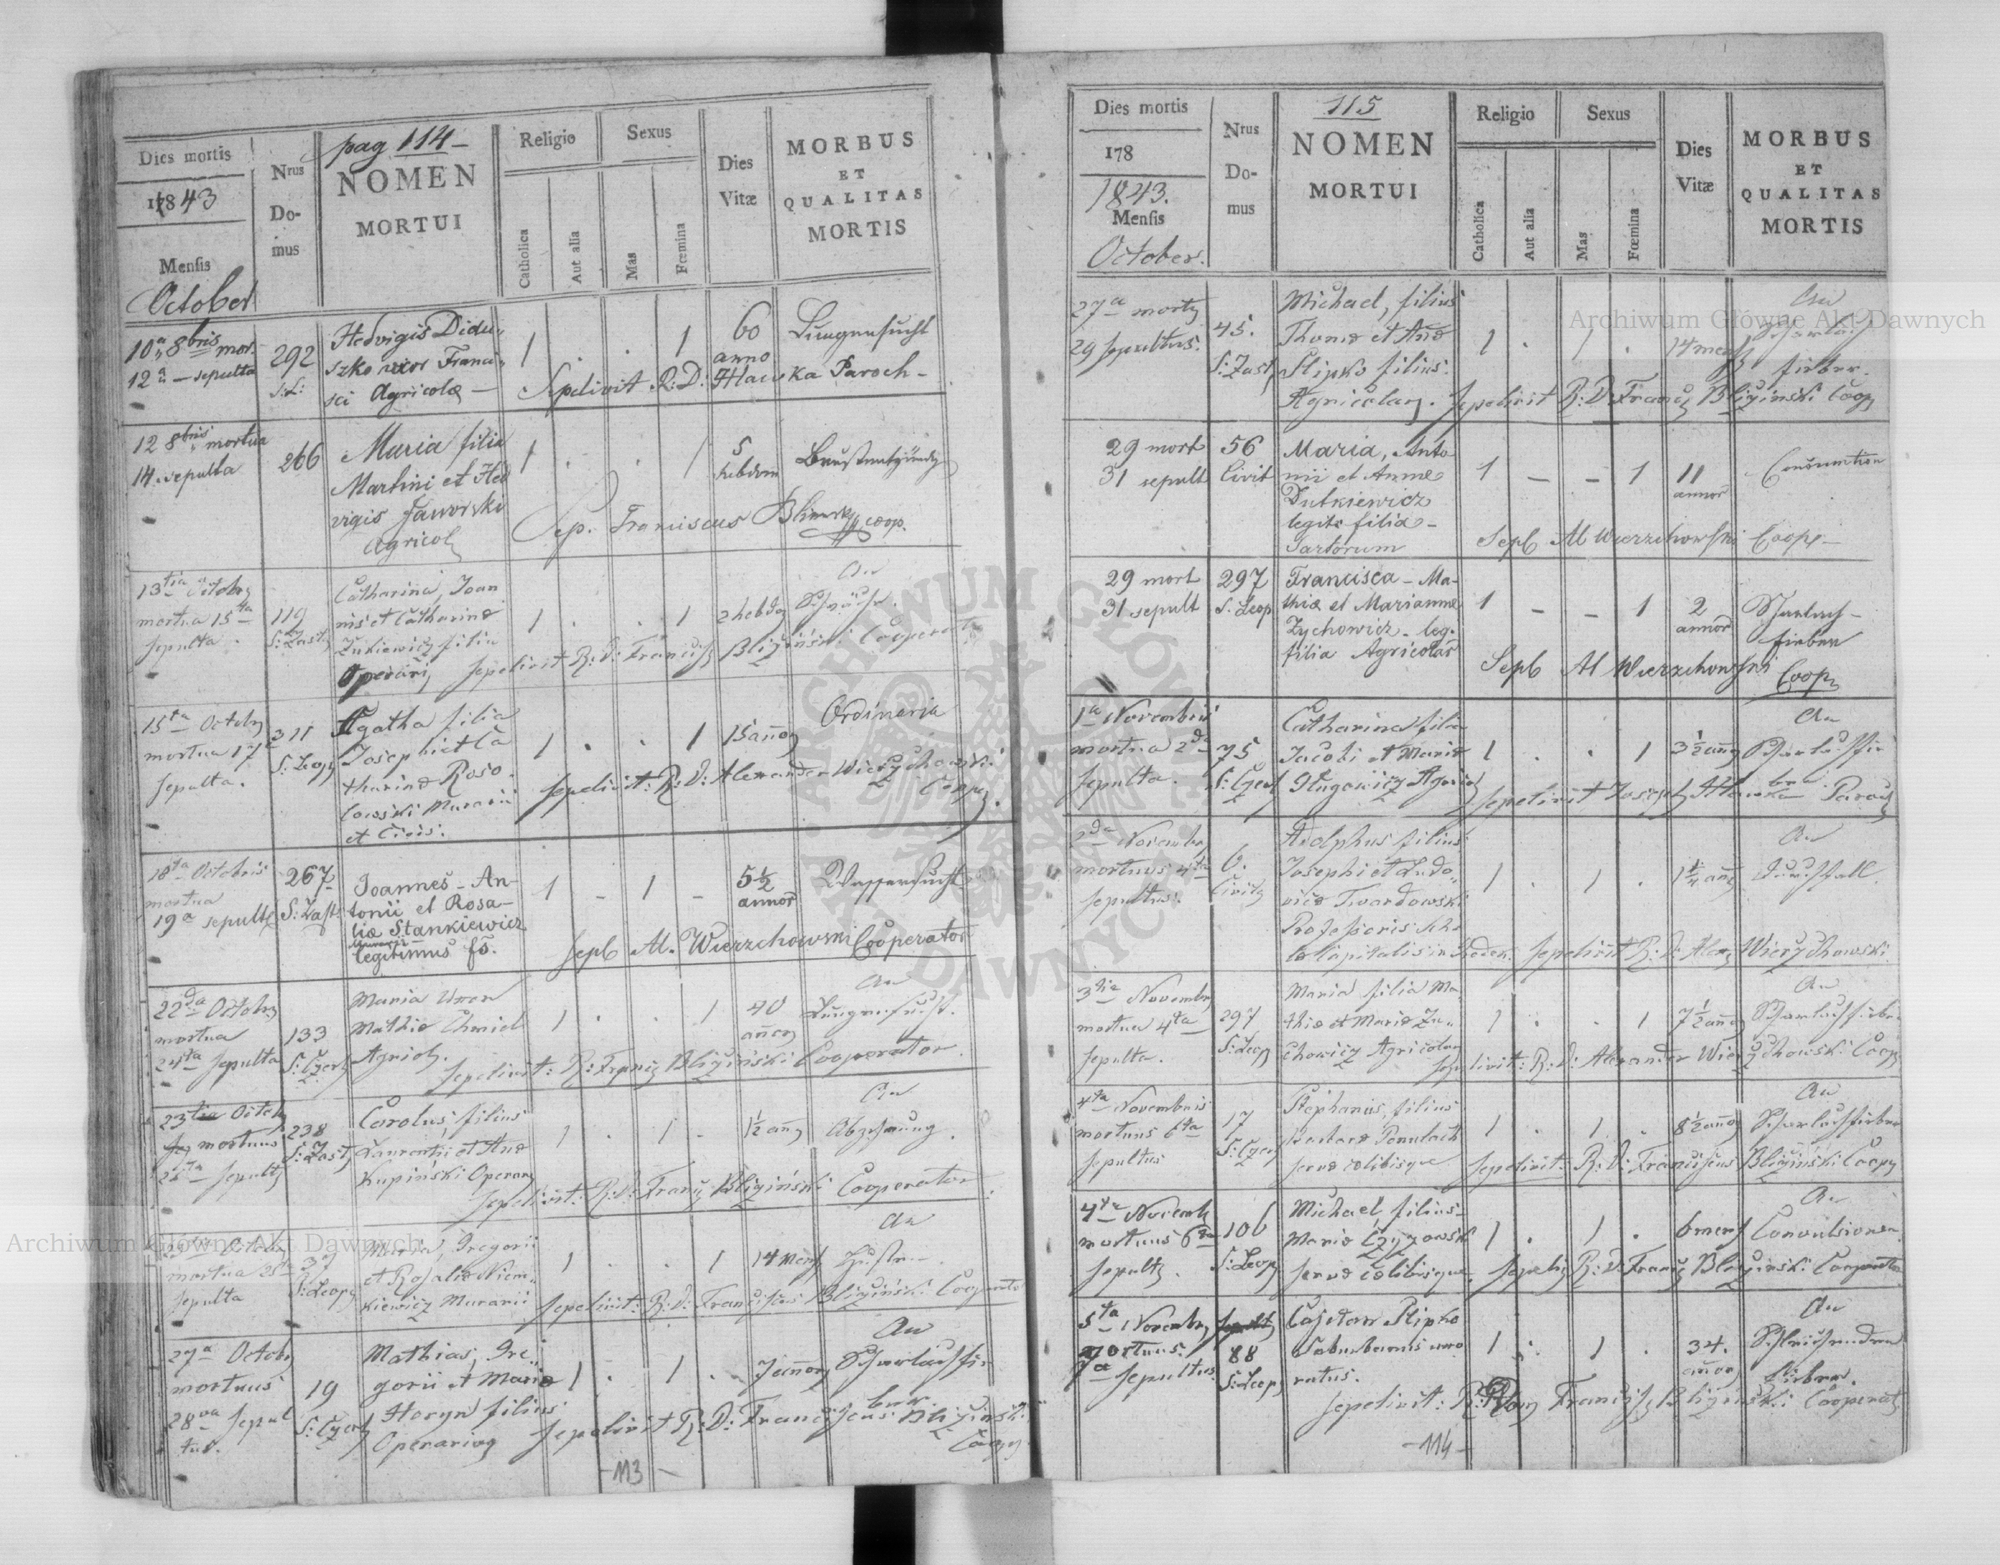 pag 114
Dies mortis
1843
Mensis
October
Nrus
Do-
mus
NOMEN
MORTUI
Religio
Catholica
Aut alia
Sexus
Mas
Fœmina
Dies
Vitæ
MORBUS
ET
QUALITAS
MORTIS
10a 8bris mor.
12a sepulta
292
Hedvigis Didu-
szko uxor Franci-
sci Agricolæ
1 . . 1
60
anno
Lungensucht
Sepelivit R: D: Hawka Paroch
12 8bris mortua
14 sepulta
266
Maria filia
Martini et Hed
vigis Jaworski
Agricol
1 . . 1
5
hebdom
Sep. Franciscus coop.
13tia Octobr
mortua 15ta
sepulta.
119
S: Zast
Catharina, Joan
nis et Catharinæ
Zukiewicz filia
Operarij
1 . . 1
2 hebdo
An
Schwäche.
sepelivit R: D: Francisz Bliziński Cooperat
15ta Octobr
mortua 17
sepulta.
311
S: Leop
Agatha filia
Josephi et Ca
tharinæ Roso-
lowski Murarii
et Civis.
1 . . 1
15 annor
Ordinaria
sepelivit: R: D: Alexander Wierzchowski
Coop.
18ta Octobris
mortua
19a sepult
267
S: Zast
Joannes - An-
tonii et Rosa-
liæ Stankiewicz
Murarii
legitimus fs.
1 - 1 -
5½
annor
Wassersucht
Sepl Al. Wierzchowski Cooperator
22da Octobr
mortua
24ta sepulta
133
S: Czer
Maria Uxor
Mathiæ Chmiel
Agricol.
1 . . 1
40
annor
An
Lungensucht.
sepelivit: R: Franc Bliziński Cooperator.
23tia Octob
mortuus
25ta sepult
238
S: Zast
Carolus, filius
Laurentii et Annæ
Kupiński Operar
1 . 1 .
½ ann
An
Abzehrung.
sepelivit: R: D: Franc Bliziński Cooperator
mortua 25ta
sepulta
37
S: Leop
Maria, Gregorii
et Rosaliæ Niem-
kiewicz Murarii
1 . . 1
14 mens
An
Husten
sepelivit: R: D: Franciscus Bliziński Cooperato
27a Octobr
mortuus
28va sepul
tus.
19
S: Czer
Mathias, Gre-
gorii et Mariæ
Hosyn filius
Operarior
1 . 1 .
7 annor
An
Scharlachfie-
ber
sepelivit R: D: Franciscus Bliziński
Coop.
-113-
115
Dies mortis
178
1843.
Mensis
October.
Nrus
Do-
mus
NOMEN
MORTUI
Religio
Catholica
Aut alia
Sexus
Mas
Fœmina
Dies
Vitæ
MORBUS
ET
QUALITAS
MORTIS
27a
29 sepultus.
45.
S: Zast
Michael, filius
Thomæ et Annæ
Slipko filius.
Agricolar.
1 . 1 .
14 mens
An
Scharlach
fieber.
sepelivit R: D: Franc Bliziński Coop
29 mort
31 sepult
56
Civit
Maria, Anto-
nii et Annæ
Dutkiewicz
legit filia -
Sartorum
1 - - 1
11
annor
Consumtion
Sepl Al Wierzchowski Coop-
29 mort
31 sepult
297
S. Leop
Francisca - Ma-
thiæ et Mariannæ
Zychowicz - leg.
filia Agricolar
1 - - 1
2
annor
Scharlach-
fieber
Sepl Al Wierzchowski
Coop
1a Novembris
mortua 2da
sepulta.
75
S: Czer
Catharina filia
Jacobi et Mariæ
Agricol
1 . . 1
3½ ann
An
Scharlachfie
ber
sepelivit Joseph Hawka Paroch
2da Novembr
mortuus 4ta
sepultus.
6.
Civit
Adolphus filius
Josephi et Ludo-
vicæ Twardowski
Professoris Scho
1 . 1 .
1¼ ann
An
Durchfall.
sepelivit R: D: Alex Wierzchowski.
3tia Novembr
mortua 4ta
sepulta.
297
S: Leop
Maria filia Ma-
thiæ et Mariæ Zy-
chowicz Agricolar
1 . . 1
7½ anno
An
Scharlachfieber
sepelivit: R: D: Alexander Wierzchowski Coop
4ta Novembris
mortuus 6ta
sepultus
17
S: Czer
Stephanus, filius
servæ cælibisque
1 . 1 .
8½ annor
An
Scharlachfieber
sepelivit: R: D: Franciscus Bliziński Coop
4ta Novemb
mortuus 6ta
sepult.
106
S: Leop
Michael filius
Mariæ Czyzowsk
servæ cælibisque
1 . 1 .
6 mens
An
Convulsionen
sepeliv R: D: Franc Bliziński Cooperator
5ta Novembr
mortuus.
7a sepultus.
88
S: Leop
Cajetan Slipko
Suburbanus uxo
ratus.
1 . 1 .
34.
annor
An
Schleichenden
Fieber.
sepelivit: R: Francisz Bliziński Cooperat
-114-
Archiwum Główne Akt Dawnych
Archiwum Główne Akt Dawnych
ARCHIWUM GŁÓWNE AKT DAWNYCH